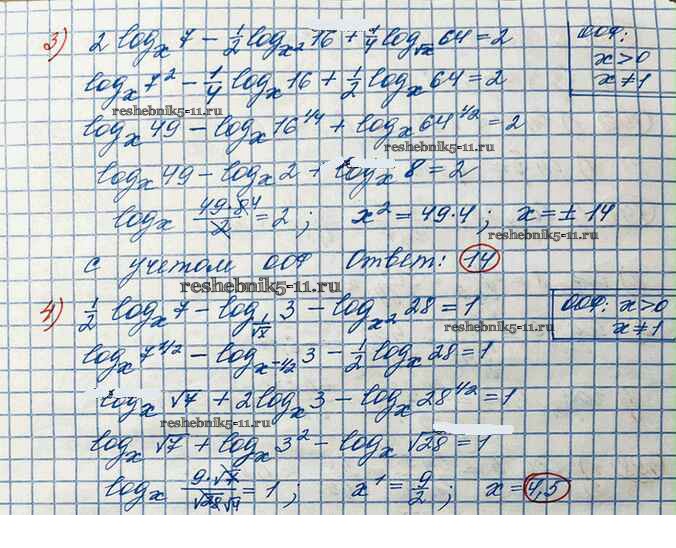 3) 2 log_x 7 - 1/2 log_{x^2} 16 + 1/4 log_{√x} 64 = 2
ООФ:
x>0
x≠1
log_x 7^2 - 1/4 log_x 16 + 1/2 log_x 64 = 2
reshebnik5-11.ru
log_x 49 - log_x 16^{1/4} + log_x 64^{1/2} = 2
reshebnik5-11.ru
log_x 49 - log_x 2 + log_x 8 = 2
log_x (49·8 4)/2 = 2; x^2 = 49·4; x = ± 14
reshebnik5-11.ru
с учетом ООФ Ответ: 14
reshebnik5-11.ru
4) 1/2 log_x 7 - log_{1/√x} 3 - log_{x^2} 28 = 1
ООФ: x>0
x≠1
reshebnik5-11.ru
log_x 7^{1/2} - log_{x^{-1/2}} 3 - 1/2 log_x 28 = 1
log_x √7 + 2 log_x 3 - log_x 28^{1/2} = 1
reshebnik5-11.ru
log_x √7 + log_x 3^2 - log_x √28 = 1
log_x (9·√7)/(√28 √4) = 1; x^1 = 9/2; x = 4,5